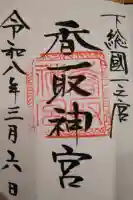 下総國一之宮
香取神宮
令和八年三月六日